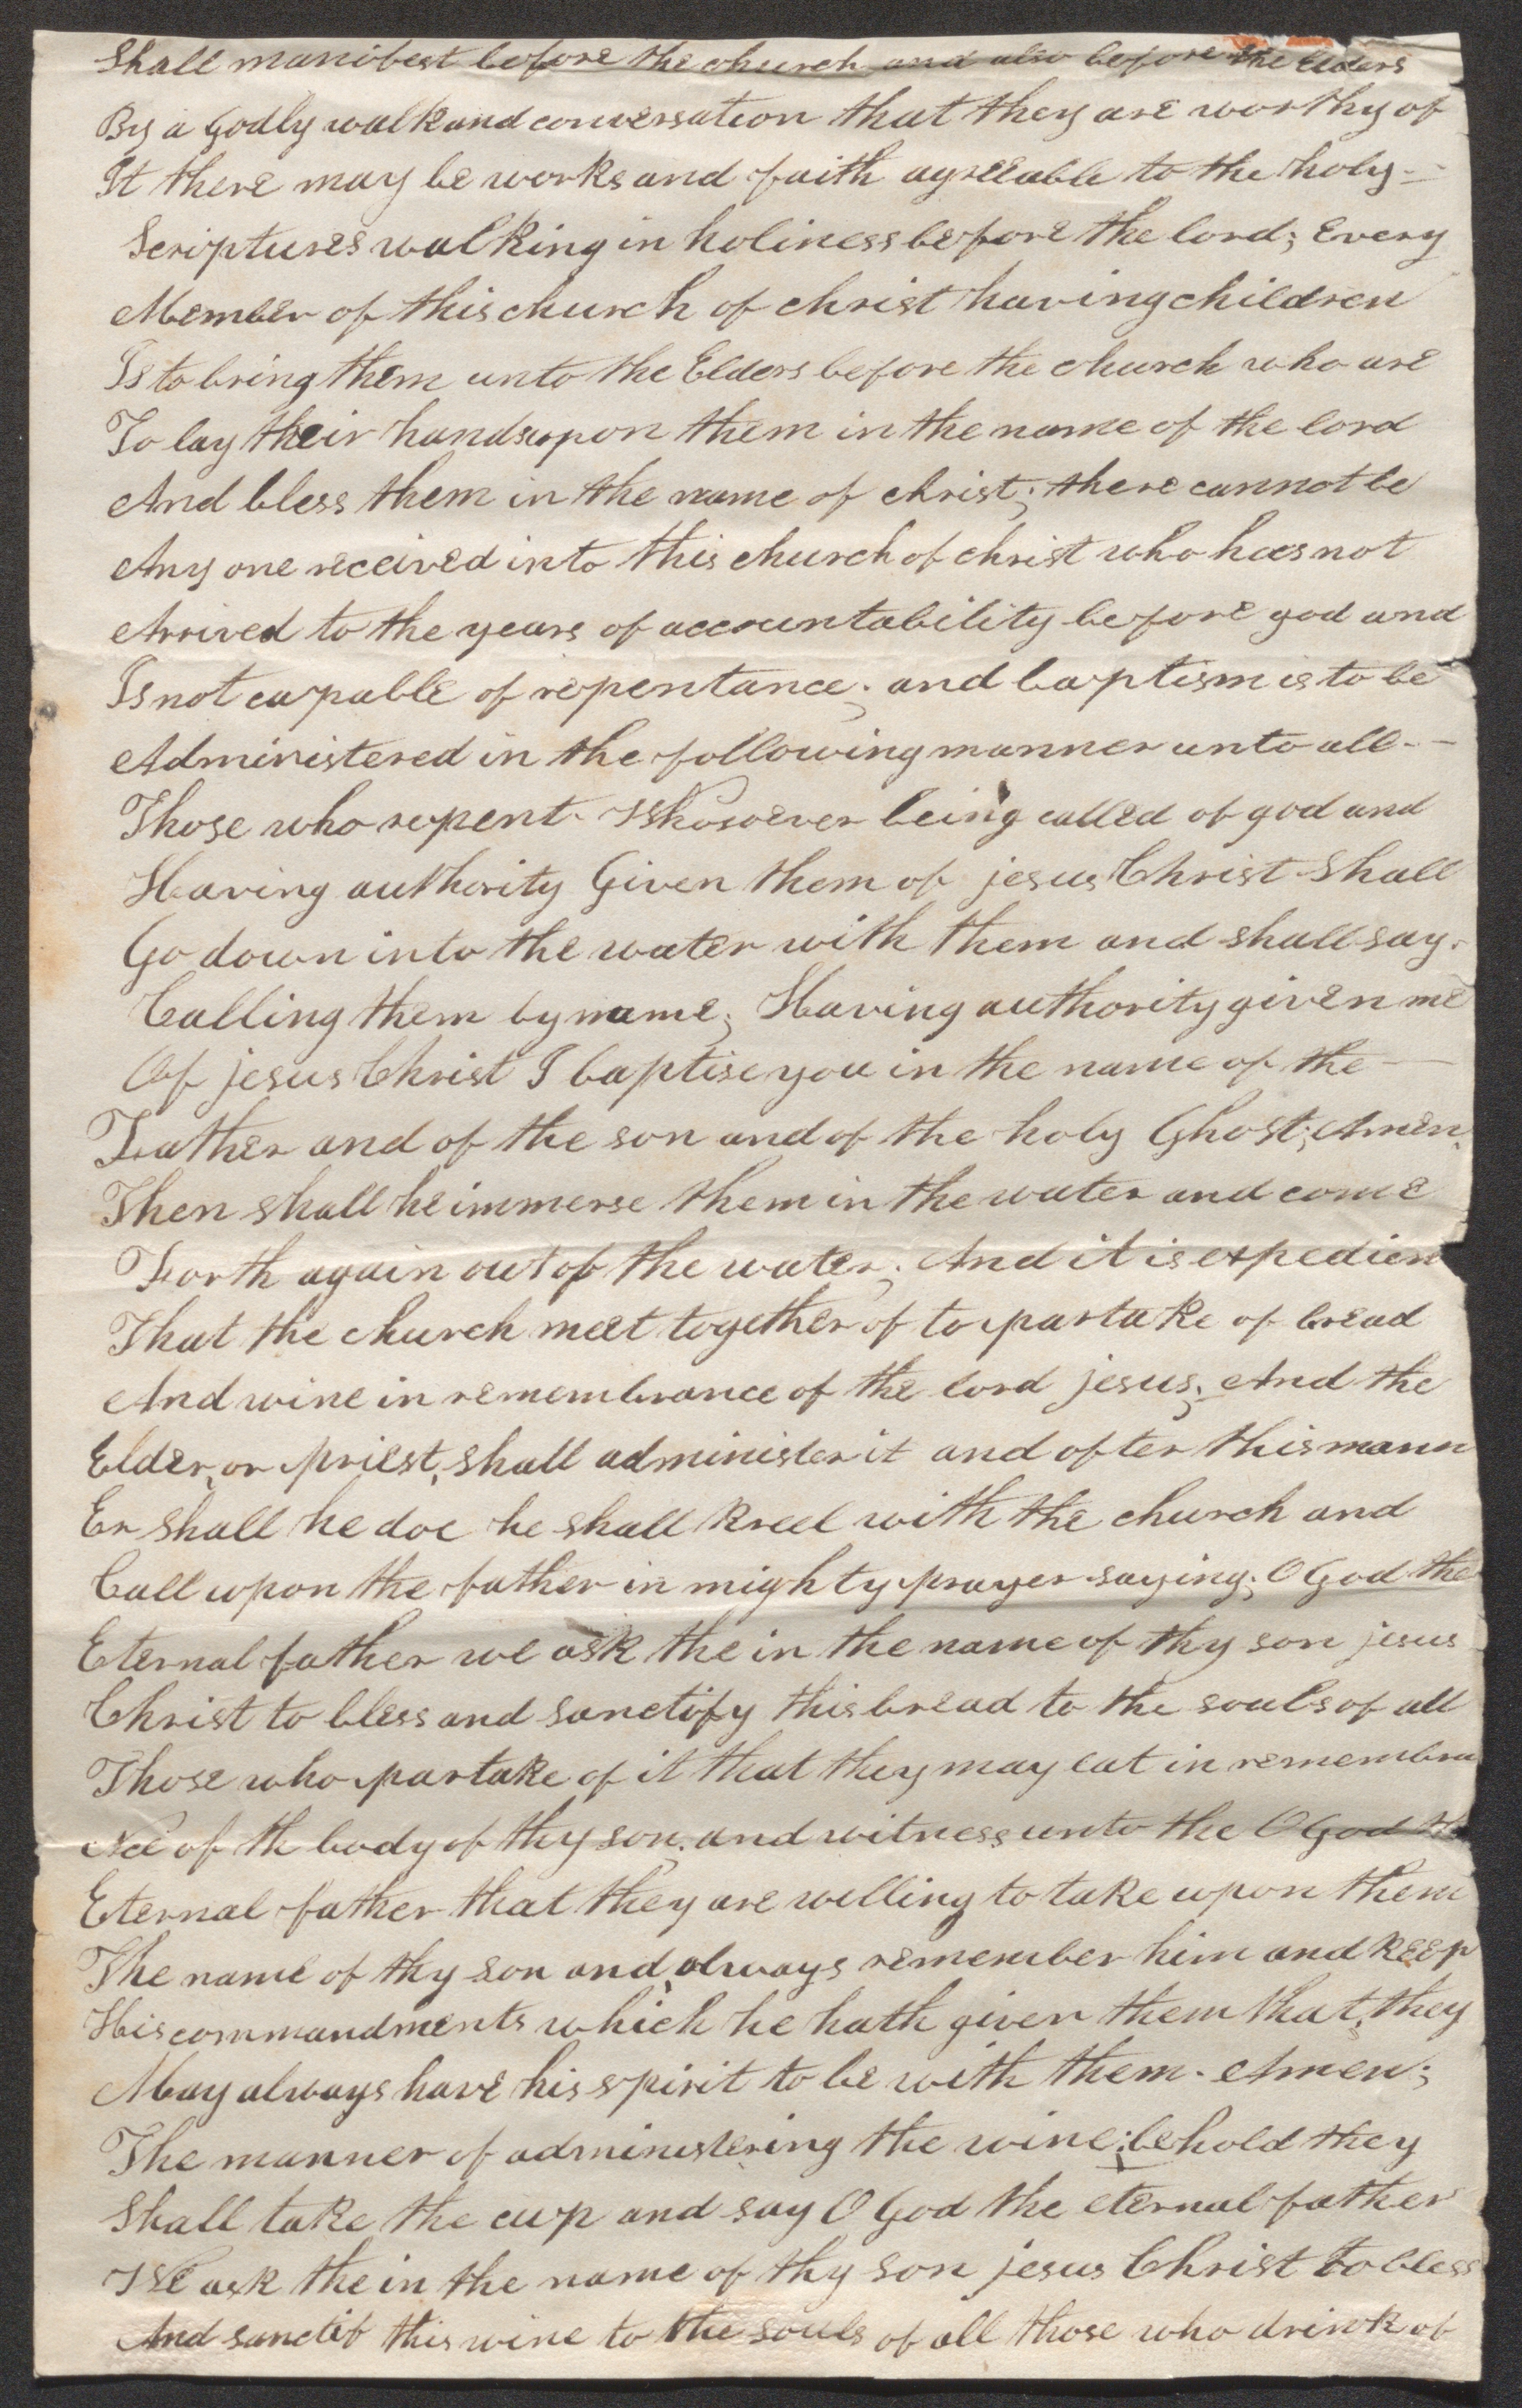 Shall manifest before the church and also before the Elders
By a Godly walk and conversation that they are worthy of
It there may be works and faith agreeable to the holy -
Scriptures walking in holiness before the lord; Every
Member of this church of christ having children
Is to bring them unto the Elders before the church who are
To lay their hands upon them in the name of the lord
And bless them in the name of christ; there cannot be
Any one received into this church of christ who has not
Arrived to the years of accountability before god and
Is not capable of repentance; and baptism is to be
Administered in the following manner unto all -
Those who repent. Whosoever being called of god and
Having authority Given them of jesus Christ Shall
Go down into the water with them and shall say.
Calling them by name; Having authority given me
Of jesus Christ I baptise you in the name of the -
Father and of the son and of the holy Ghost; Amen.
Then shall he immerse them in the water and come
Forth again out of the water; And it is expedien
That the church meet together of to partake of bread
And wine in remembrance of the lord jesus; And the
Elder, or priest, shall administer it and after this mann
Er shall he doe he shall kneel with the church and
Call upon the father in mighty prayer saying; O God the
Eternal father we ask the in the name of thy son jesus
Christ to bless and sanctify this bread to the souls of all
Those who partake of it that they may eat in remembra
Nce of th body of thy son; and witness unto the O God th
Eternal father that they are willing to take upon them
The name of thy son and always remember him and keep
His commandments which he hath given them that they
May always have his spirit to be with them. Amen;
The manner of administering the wine; behold they
Shall take the cup and say O God the eternal father
We ask the in the name of thy son jesus Christ to bless
And sanctif this wine to the souls of all those who drink of